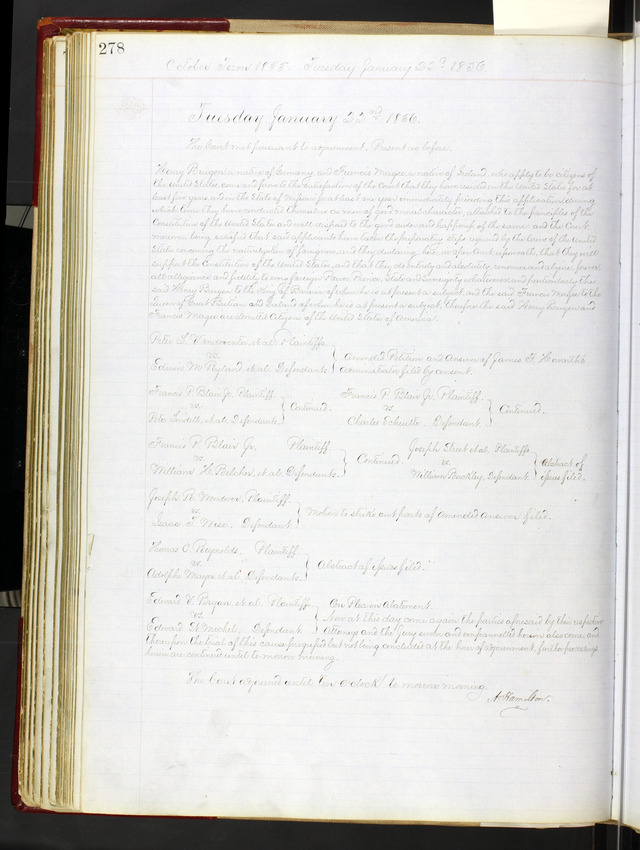 278
October Term 1855. Tuesday January 22d 1856.
Tuesday January 22nd 1856.
The Court met pursuant to adjournment. Present as before.
Henry Brugen a native of Germany and Francis Magee a native of Ireland, who apply to be citizens of
the United States, come and prove to the satisfaction of the Court that they have resided in the United States for at
least five years and in the State of Missouri at least one year immediately preceding this application, during
which time they have conducted themselves as men of good moral character, attached to the principles of the
Constitution of the United States and well disposed to the good order and happiness of the same and the Court
moreover being satisfied that said applicants have taken the preparatory steps required by the laws of the United
States concerning the naturalization of foreigners, and they declaring here, in open Court, upon oath, that they will
support the Constitution of the United States, and that they do entirely and absolutely renounce and abjure forever
all allegiance and fidelity to every foreign Power, Prince, State and sovereignty whatsoever and particularly the
said Henry Brugen to the King of of whom he is at present a subject, and the said Francis Magee to the
Queen of Great Britain and Ireland of whom he is at present a subject, therefore the said Henry Brugen and
Francis Magee are admitted Citizens of the United States of America.
Peter L. Vandeventer, et al. Plaintiffs
vs.
Edwin M. Ryland, et al. Defendants.
Amended Petition and Answer of James H.
Administrator filed by consent.
Francis P. Blair Jr. Plaintiff.
vs.
Peter Lindell, et al. Defendants.
Continued.
Francis P. Blair Jr. Plaintiff.
vs.
Charles Defendant.
Continued.
Francis P. Blair Jr. Plaintiff
vs.
William H. Belcher, et al. Defendants.
Continued.
Joseph Street et al. Plaintiffs
vs.
William Defendant.
Abstract of
issues filed.
Joseph R. Plaintiff.
vs.
Isaac T. Wise. Defendant
Motion to strike out parts of Amended Answer filed.
Thomas C. Reynolds. Plaintiff.
vs.
Adolph Mayer et al. Defendants.
Abstract of issues filed.
Edward V. Bryan, et al. Plaintiffs
vs.
Edward H. Defendant.
On Plea in Abatement.
Now at this day come again the parties aforesaid by their respective
Attorneys and the Jury sworn and empannelled herein also come, and
thereupon the trial of this cause progressed but not being concluded at the hour of adjournment, further proceedings
herein are continued until to morrow morning.
The Court adjourned until ten o'clock to morrow morning.
A. Hamilton.